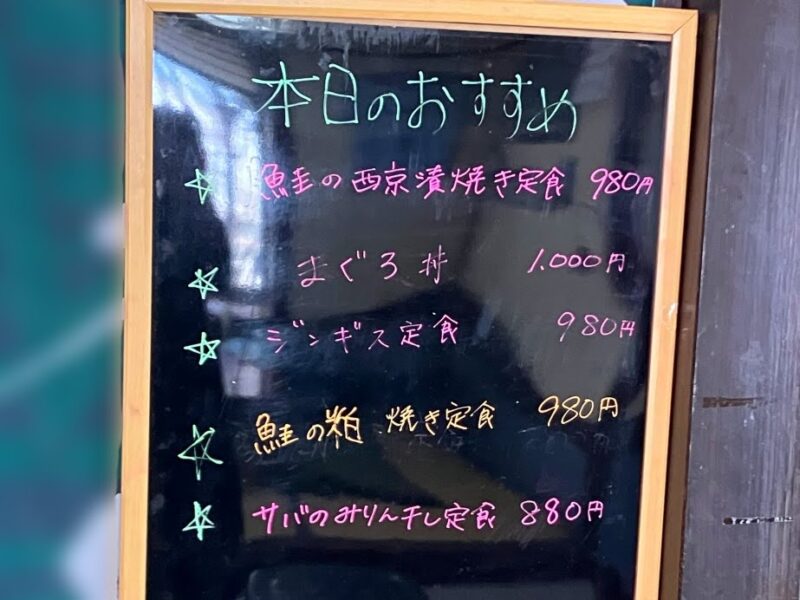 本日のおすすめ
☆ 鮭の西京漬焼き定食 980円
☆ まぐろ丼 1.000円
☆ ジンギス定食 980円
☆ 鮭の粕焼き定食 980円
☆ サバのみりん干し定食 880円